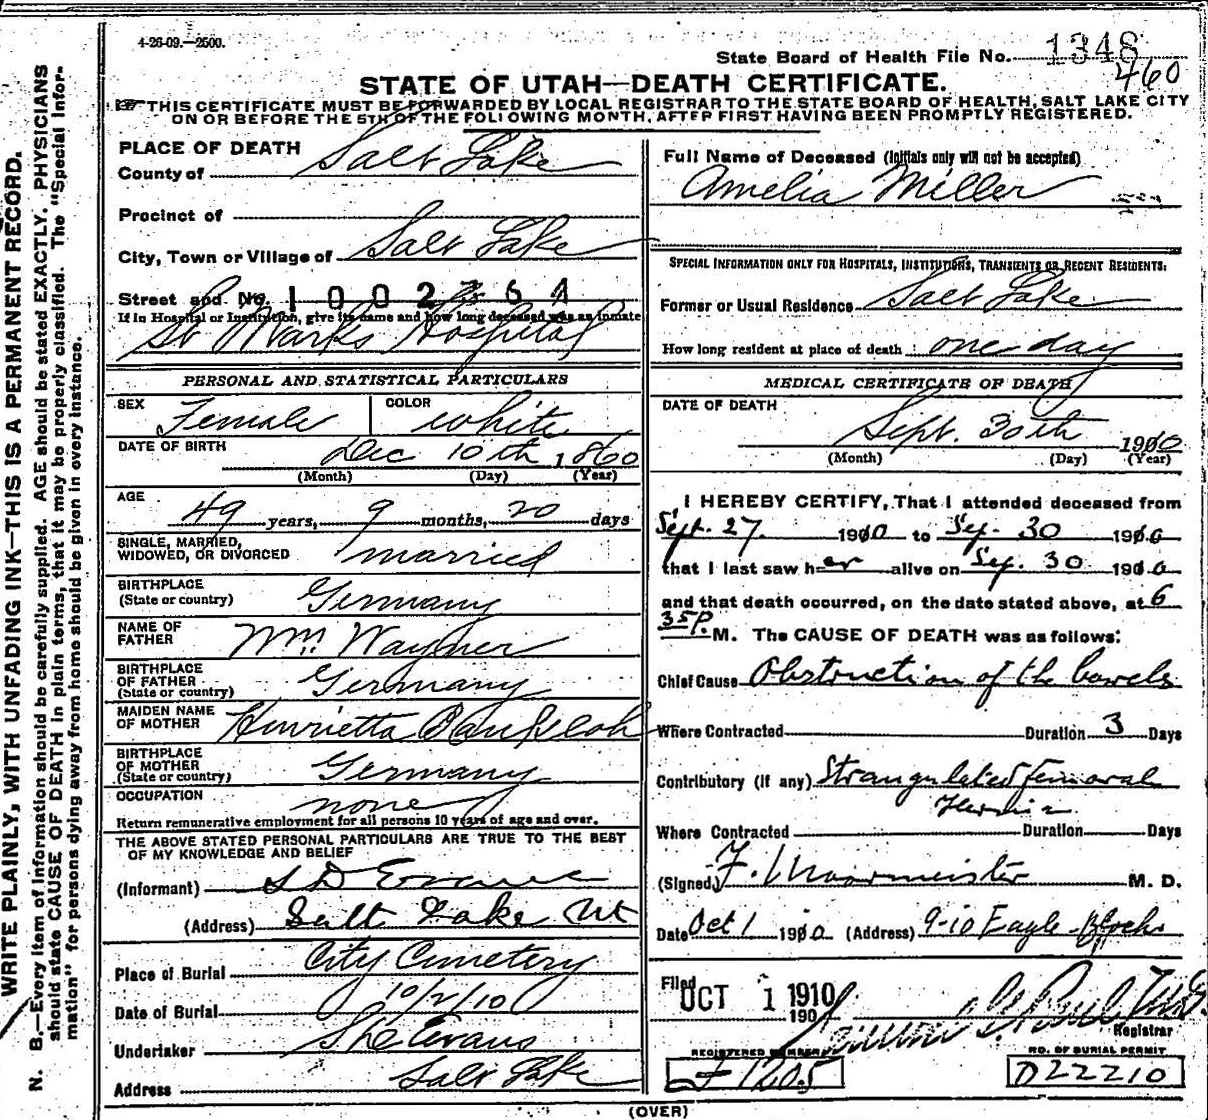 4-26-09.—2500.
State Board of Health File No. 1348
460
STATE OF UTAH—DEATH CERTIFICATE.
THIS CERTIFICATE MUST BE FORWARDED BY LOCAL REGISTRAR TO THE STATE BOARD OF HEALTH, SALT LAKE CITY
ON OR BEFORE THE 5TH OF THE FOLLOWING MONTH, AFTER FIRST HAVING BEEN PROMPTLY REGISTERED.
WRITE PLAINLY, WITH UNFADING INK—THIS IS A PERMANENT RECORD.
N. B.—Every item of information should be carefully supplied. AGE should be stated EXACTLY. PHYSICIANS
should state CAUSE OF DEATH in plain terms, that it may be properly classified. The "Special Infor-
mation" for persons dying away from home should be given in every instance.
PLACE OF DEATH
County of Salt Lake
Precinct of
City, Town or Village of Salt Lake
Street and No. 1002364
If in Hospital or Institution, give its name and how long deceased was an inmate
St Marks Hospital
PERSONAL AND STATISTICAL PARTICULARS
SEX Female COLOR White
DATE OF BIRTH Dec 10th 1860
(Month) (Day) (Year)
AGE
49 years, 9 months, 20 days
SINGLE, MARRIED,
WIDOWED, OR DIVORCED married
BIRTHPLACE
(State or country) Germany
NAME OF
FATHER Wm Wagner
BIRTHPLACE
OF FATHER
(State or country) Germany
MAIDEN NAME
OF MOTHER Henrietta
BIRTHPLACE
OF MOTHER
(State or country) Germany
OCCUPATION none
Return remunerative employment for all persons 10 years of age and over.
THE ABOVE STATED PERSONAL PARTICULARS ARE TRUE TO THE BEST
OF MY KNOWLEDGE AND BELIEF
(Informant) S D Evans
(Address) Salt Lake Ut
Place of Burial City Cemetery
Date of Burial 10/2/10
Undertaker Evans
Address Salt Lake
Full Name of Deceased (Initials only will not be accepted)
Amelia Miller
SPECIAL INFORMATION ONLY FOR HOSPITALS, INSTITUTIONS, TRANSIENTS OR RECENT RESIDENTS.
Former or Usual Residence Salt Lake
How long resident at place of death one day
MEDICAL CERTIFICATE OF DEATH
DATE OF DEATH
Sept. 30th 1910
(Month) (Day) (Year)
I HEREBY CERTIFY, That I attended deceased from
Sept. 27. 1910 to Sep. 30 1910
that I last saw her alive on Sep. 30 1910
and that death occurred, on the date stated above, at 6
35 P. M. The CAUSE OF DEATH was as follows:
Chief Cause Obstruction of the bowels
Where Contracted Duration 3 Days
Contributory (if any) Strangulated femoral
Hernia
Where Contracted Duration Days
(Signed) F. Moormeister M. D.
Date Oct 1 1910 (Address) 9-10 Eagle Block
Filed
OCT 1 1910
190
Registrar
REGISTERED NUMBER NO. OF BURIAL PERMIT
F 1205 D22210
(OVER)